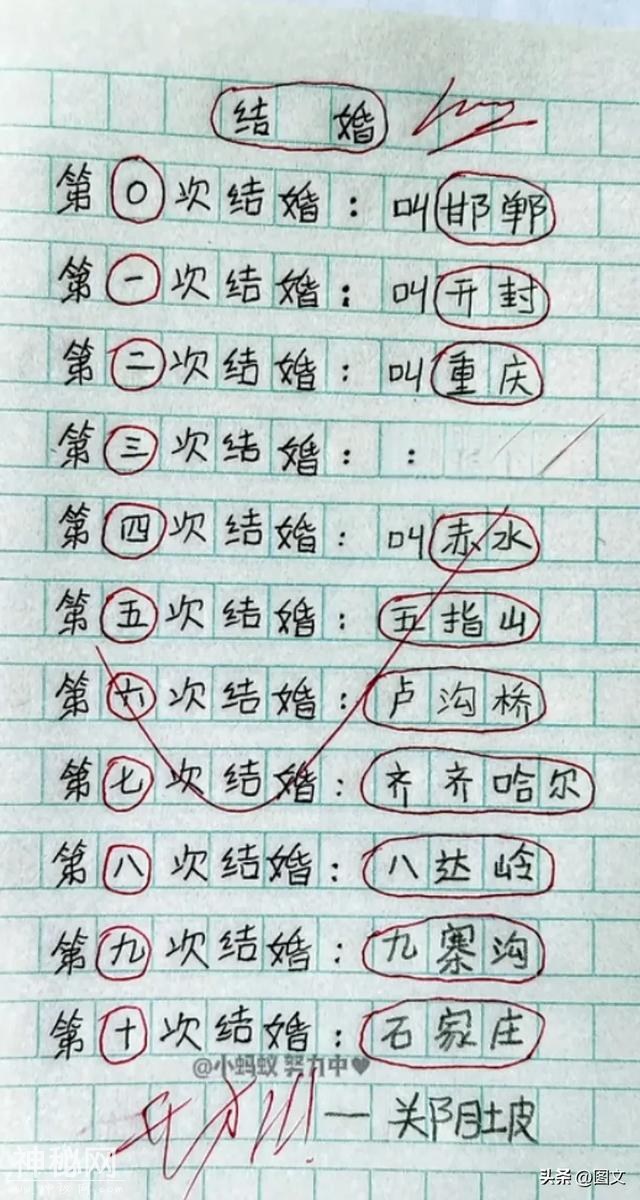 结 婚
第〇次结婚：叫邯郸
第一次结婚：叫开封
第二次结婚：叫重庆
第三次结婚：：
第四次结婚：叫赤水
第五次结婚：五指山
第六次结婚：卢沟桥
第七次结婚：齐齐哈尔
第八次结婚：八达岭
第九次结婚：九寨沟
第十次结婚：石家庄
@小蚂蚁 努力中♥
!!!
一 郑阴坡
神秘网
头条 @图文